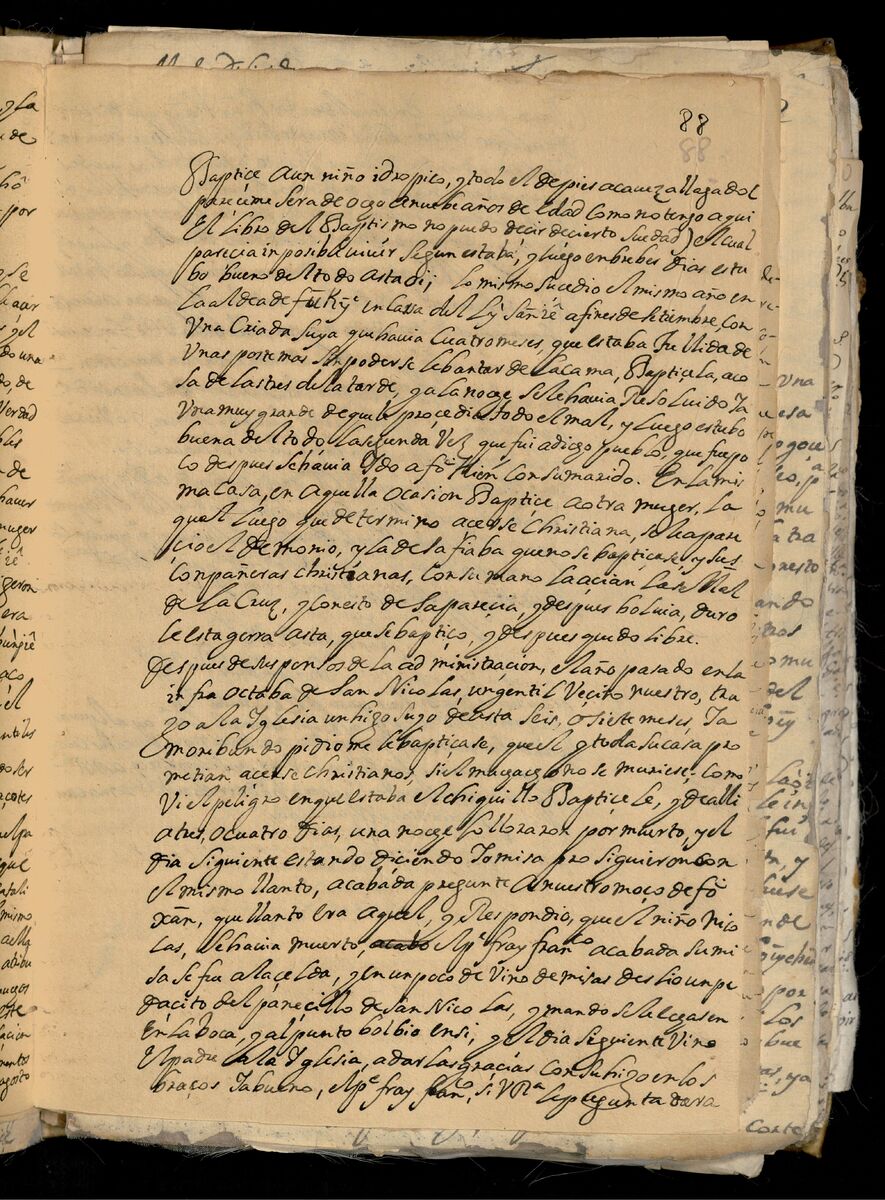 88
Baptice aun niño idropico, y todo el de pies acaveza llagado (
pareceme sera de ocho o nuebe años de edad como no tengo aqui
el libro del Baptismo no puedo decir de cierto su edad) el cual
parecia inposible vivir segun estaba, y luego en brebes dias estu
bo bueno del todo asta oi; lo mismo sucedio el mismo año en
la aldea de en casa del a fines de setiembre, con
Una Criada suya que havia cuatro meses, que estaba tullida de
Unas postemas sin poderse lebantar de la cama, Baptićela, aco
sa de las tres de la tarde, y a la noche, se le havia Resoluido Ja
Vna muy grande de que le procedia todo el mal, y luego estubo
buena del todo. La segunda Vez que fui a dicho pueblo, que fue po
co despues se havia Ydo a consumarido. En la mis
ma casa, en aquella ocasion Baptice a otra muger, la
qual luego que determino acerse Christiana, se le apare
cio el demonio, y la desafiaba que no se bapticase, y sus
Conpañeras christianas, con su mano la acian la señal
de la Cruz, y con esto desaparecia, y despues bolvia, duro
le esta gerra asta, que se baptiço, y despues quedo libre.
Despues de suspensos de la administracion, el año pasado en la
infra octaba de San Nicolas, un gentil Vecino nuestro, tra
xo a la Yglesia un hijo suyo de asta seis, o siete meses, Ja
moribundo pidiome le bapticase, que el y toda su casa pro
metian acerse christianos, si el muchacho no se muriese; como
Vi el peligro en que estaba el chiquillo Bapticele, y de alli
a tres, o cuatro dias, una noche lo lloraron por muerto, y el
dia siguiente estando diciendo Jo misa prosiguieron con
el mismo llanto, acabada pregunte a nuestro moço de
xan, que llanto era aquel, y Respondio, que el niño Nico
las, se havia muerto, acabo el Pe. fray franco acabada su mi
sa se fue a la celda, y en un poco de Vino de misas deslio un pe
dacito del panecillo de San Nicolas, y mando se le echasen
En la boca, y al punto bolbio en si, y el dia siguiente Vino
El padre a la Yglesia, a dar las gracias con su hijo en los
braços Ja bueno, el Pe. fray franco, si VRa le pregunta dara